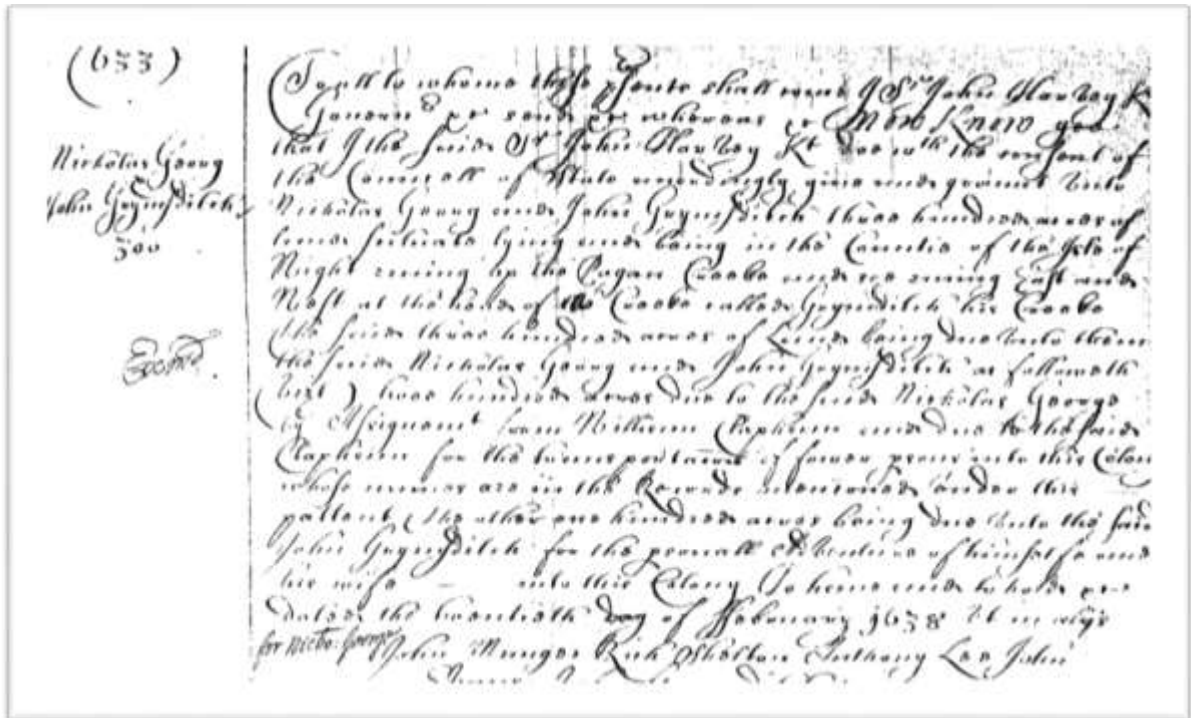 (633)
Nicholas Georg
John Grymsditch
300
To all to whome these psents shall come I Sr John Harvey Kt
Governr &c send &c whereas &c Now Know yee
that I the said Sr John Harvey Kt doe wth the consent of
the Councell of State accordingly give and graunt unto
Nicholas Georg and John Grymsditch three hundred acres of
land situate lying and being in the Countie of the Isle of
Wight runing up the Pagan Creeke and soe runing East and
West at the head of Creeke called Grymsditch his Creeke
the said three hundred acres of Land being due unto them
the said Nicholas Georg and John Grymsditch as followeth
(vizt) two hundred acres due to the said Nicholas George
by Assignemt from William Clapham and due to the said
Clapham for the transportacon of fower psons into this Colon
whose names are in the Records menconed under this
pattent, the other one hundred acres being due unto the said
John Grymsditch for the psonall Adventure of himselfe and
his wife — into this Colony To have and to hold &c
dated the twentieth day of ffebruary 1638 Ut in alijs
for Nicho: George John Munger Rich Shelton Anthony Lee John